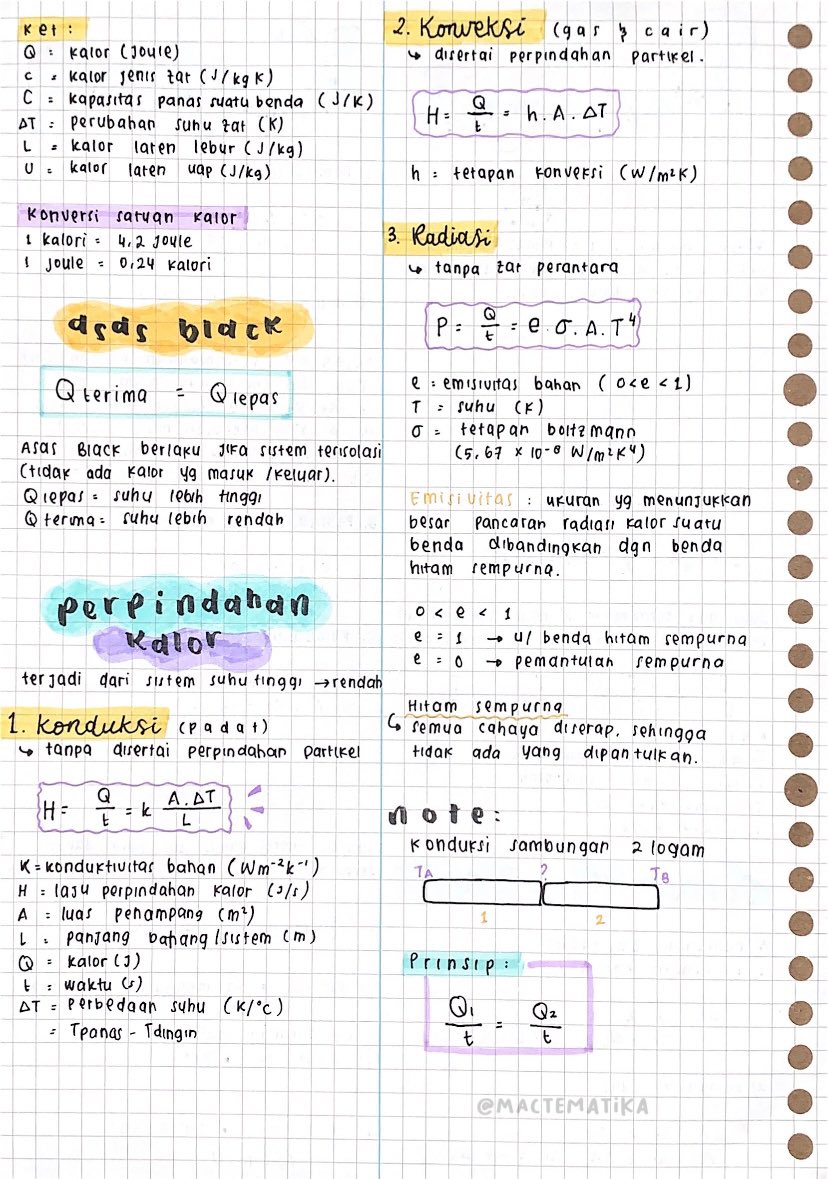 ket :
Q = kalor (Joule)
c = kalor jenis zat (J/kg K)
C = kapasitas panas suatu benda (J/K)
ΔT = perubahan suhu zat (K)
L = kalor laten lebur (J/kg)
U = kalor laten uap (J/kg)
Konversi satuan kalor
1 kalori = 4,2 joule
1 joule = 0,24 kalori
asas black
Q terima = Q lepas
Asas Black berlaku jika sistem terisolasi
(tidak ada kalor yg masuk /keluar).
Q lepas = suhu lebih tinggi
Q terima = suhu lebih rendah
perpindahan
kalor
terjadi dari sistem suhu tinggi → rendah
1. Konduksi (padat)
↳ tanpa disertai perpindahan partikel
H = Q/t = k A.ΔT/L
K = konduktivitas bahan (Wm⁻²k⁻¹)
H = laju perpindahan kalor (J/s)
A = luas penampang (m²)
L = panjang bahang/sistem (m)
Q = kalor (J)
t = waktu (s)
ΔT = perbedaan suhu (K/°C)
= Tpanas - Tdingin
2. Konveksi (gas & cair)
↳ disertai perpindahan partikel.
H = Q/t = h. A. ΔT
h = tetapan konveksi (W/m²K)
3. Radiasi
↳ tanpa zat perantara
P = Q/t = e. σ. A. T⁴
e = emisivitas bahan (0<e<1)
T = suhu (K)
σ = tetapan boltzmann
(5,67 × 10⁻⁸ W/m²K⁴)
Emisivitas : ukuran yg menunjukkan
besar pancaran radiasi kalor suatu
benda dibandingkan dgn benda
hitam sempurna.
0 < e < 1
e = 1 → u/ benda hitam sempurna
e = 0 → pemantulan sempurna
Hitam sempurna
↳ semua cahaya diserap, sehingga
tidak ada yang dipantulkan.
note:
Konduksi sambungan 2 logam
TA ? TB
1 2
Prinsip:
Q₁/t = Q₂/t
@MACTEMATiKA